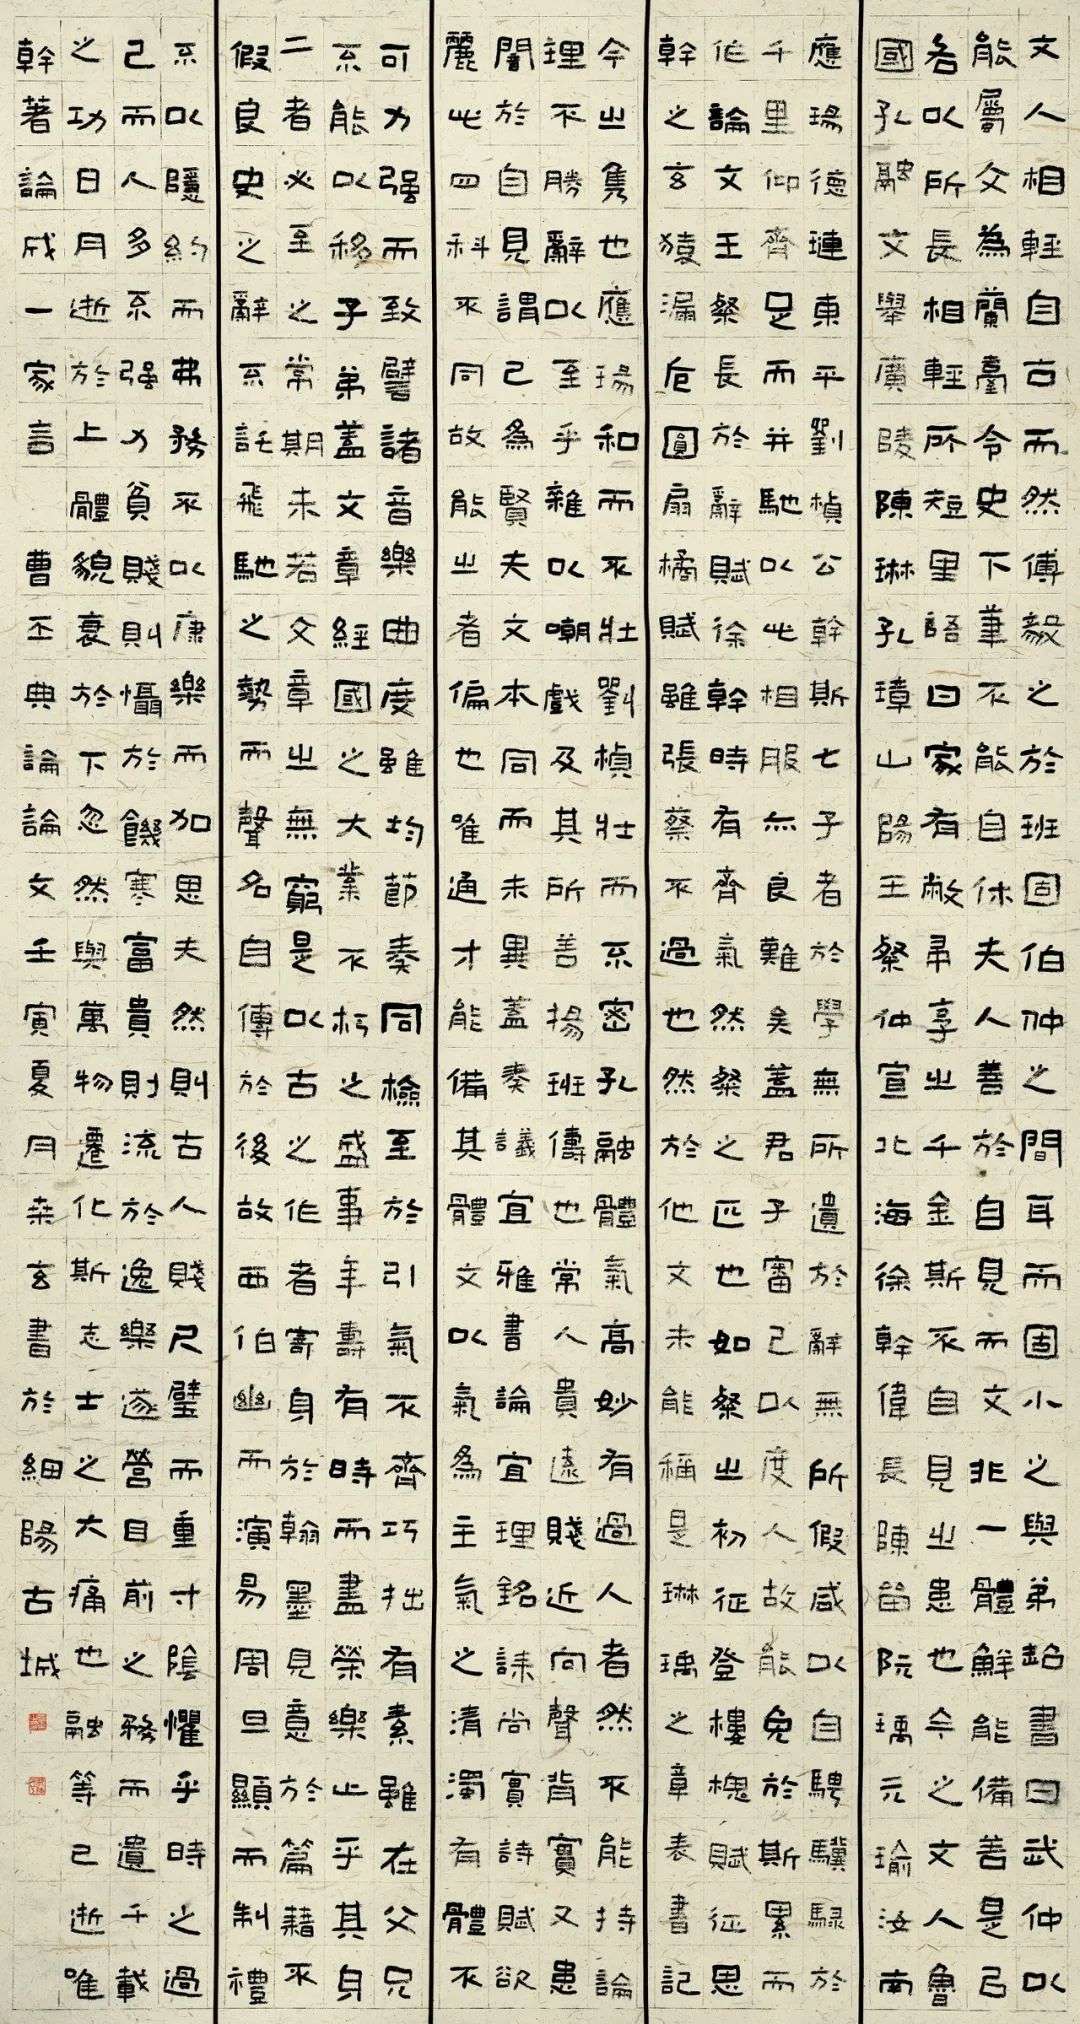 文人相輕自古而然傅毅之於班固伯仲之間耳而固小之與弟超書曰武仲以
能屬文為蘭臺令史下筆不能自休夫人善於自見而文非一體鮮能備善是以
各以所長相輕所短里語曰家有敝帚享之千金斯不自見之患也今之文人魯
國孔融文舉廣陵陳琳孔璋山陽王粲仲宣北海徐幹偉長陳留阮瑀元瑜汝南
應瑒德璉東平劉楨公幹斯七子者於學無所遺於辭無所假咸以自騁驥騄於
千里仰齊足而并馳以此相服亦良難矣蓋君子審己以度人故能免於斯累而
作論文王粲長於辭賦徐幹時有齊氣然粲之匹也如粲之初征登樓槐賦征思
幹之玄猿漏卮圓扇橘賦雖張蔡不過也然於他文未能稱是琳瑀之章表書記
今之雋也應瑒和而不壯劉楨壯而不密孔融體氣高妙有過人者然不能持論
理不勝辭以至乎雜以嘲戲及其所善揚班儔也常人貴遠賤近向聲背實又患
闇於自見謂己為賢夫文本同而未異蓋奏議宜雅書論宜理銘誄尚實詩賦欲
麗此四科不同故能之者偏也唯通才能備其體文以氣為主氣之清濁有體不
可力强而致譬諸音樂曲度雖均節奏同檢至於引氣不齊巧拙有素雖在父兄
不能以移子弟蓋文章經國之大業不朽之盛事年壽有時而盡榮樂止乎其身
二者必至之常期未若文章之無窮是以古之作者寄身於翰墨見意於篇藉不
假良史之辭不託飛馳之勢而聲名自傳於後故西伯幽而演易周旦顯而制禮
不以隱約而弗務不以康樂而加思夫然則古人賤尺璧而重寸陰懼乎時之過
已而人多不强力貧賤則懾於饑寒富貴則流於逸樂遂營目前之務而遺千載
之功日月逝於上體貌衰於下忽然與萬物遷化斯志士之大痛也融等已逝唯
幹著論成一家言 曹丕典論論文壬寅夏月桒玄書於細陽古城